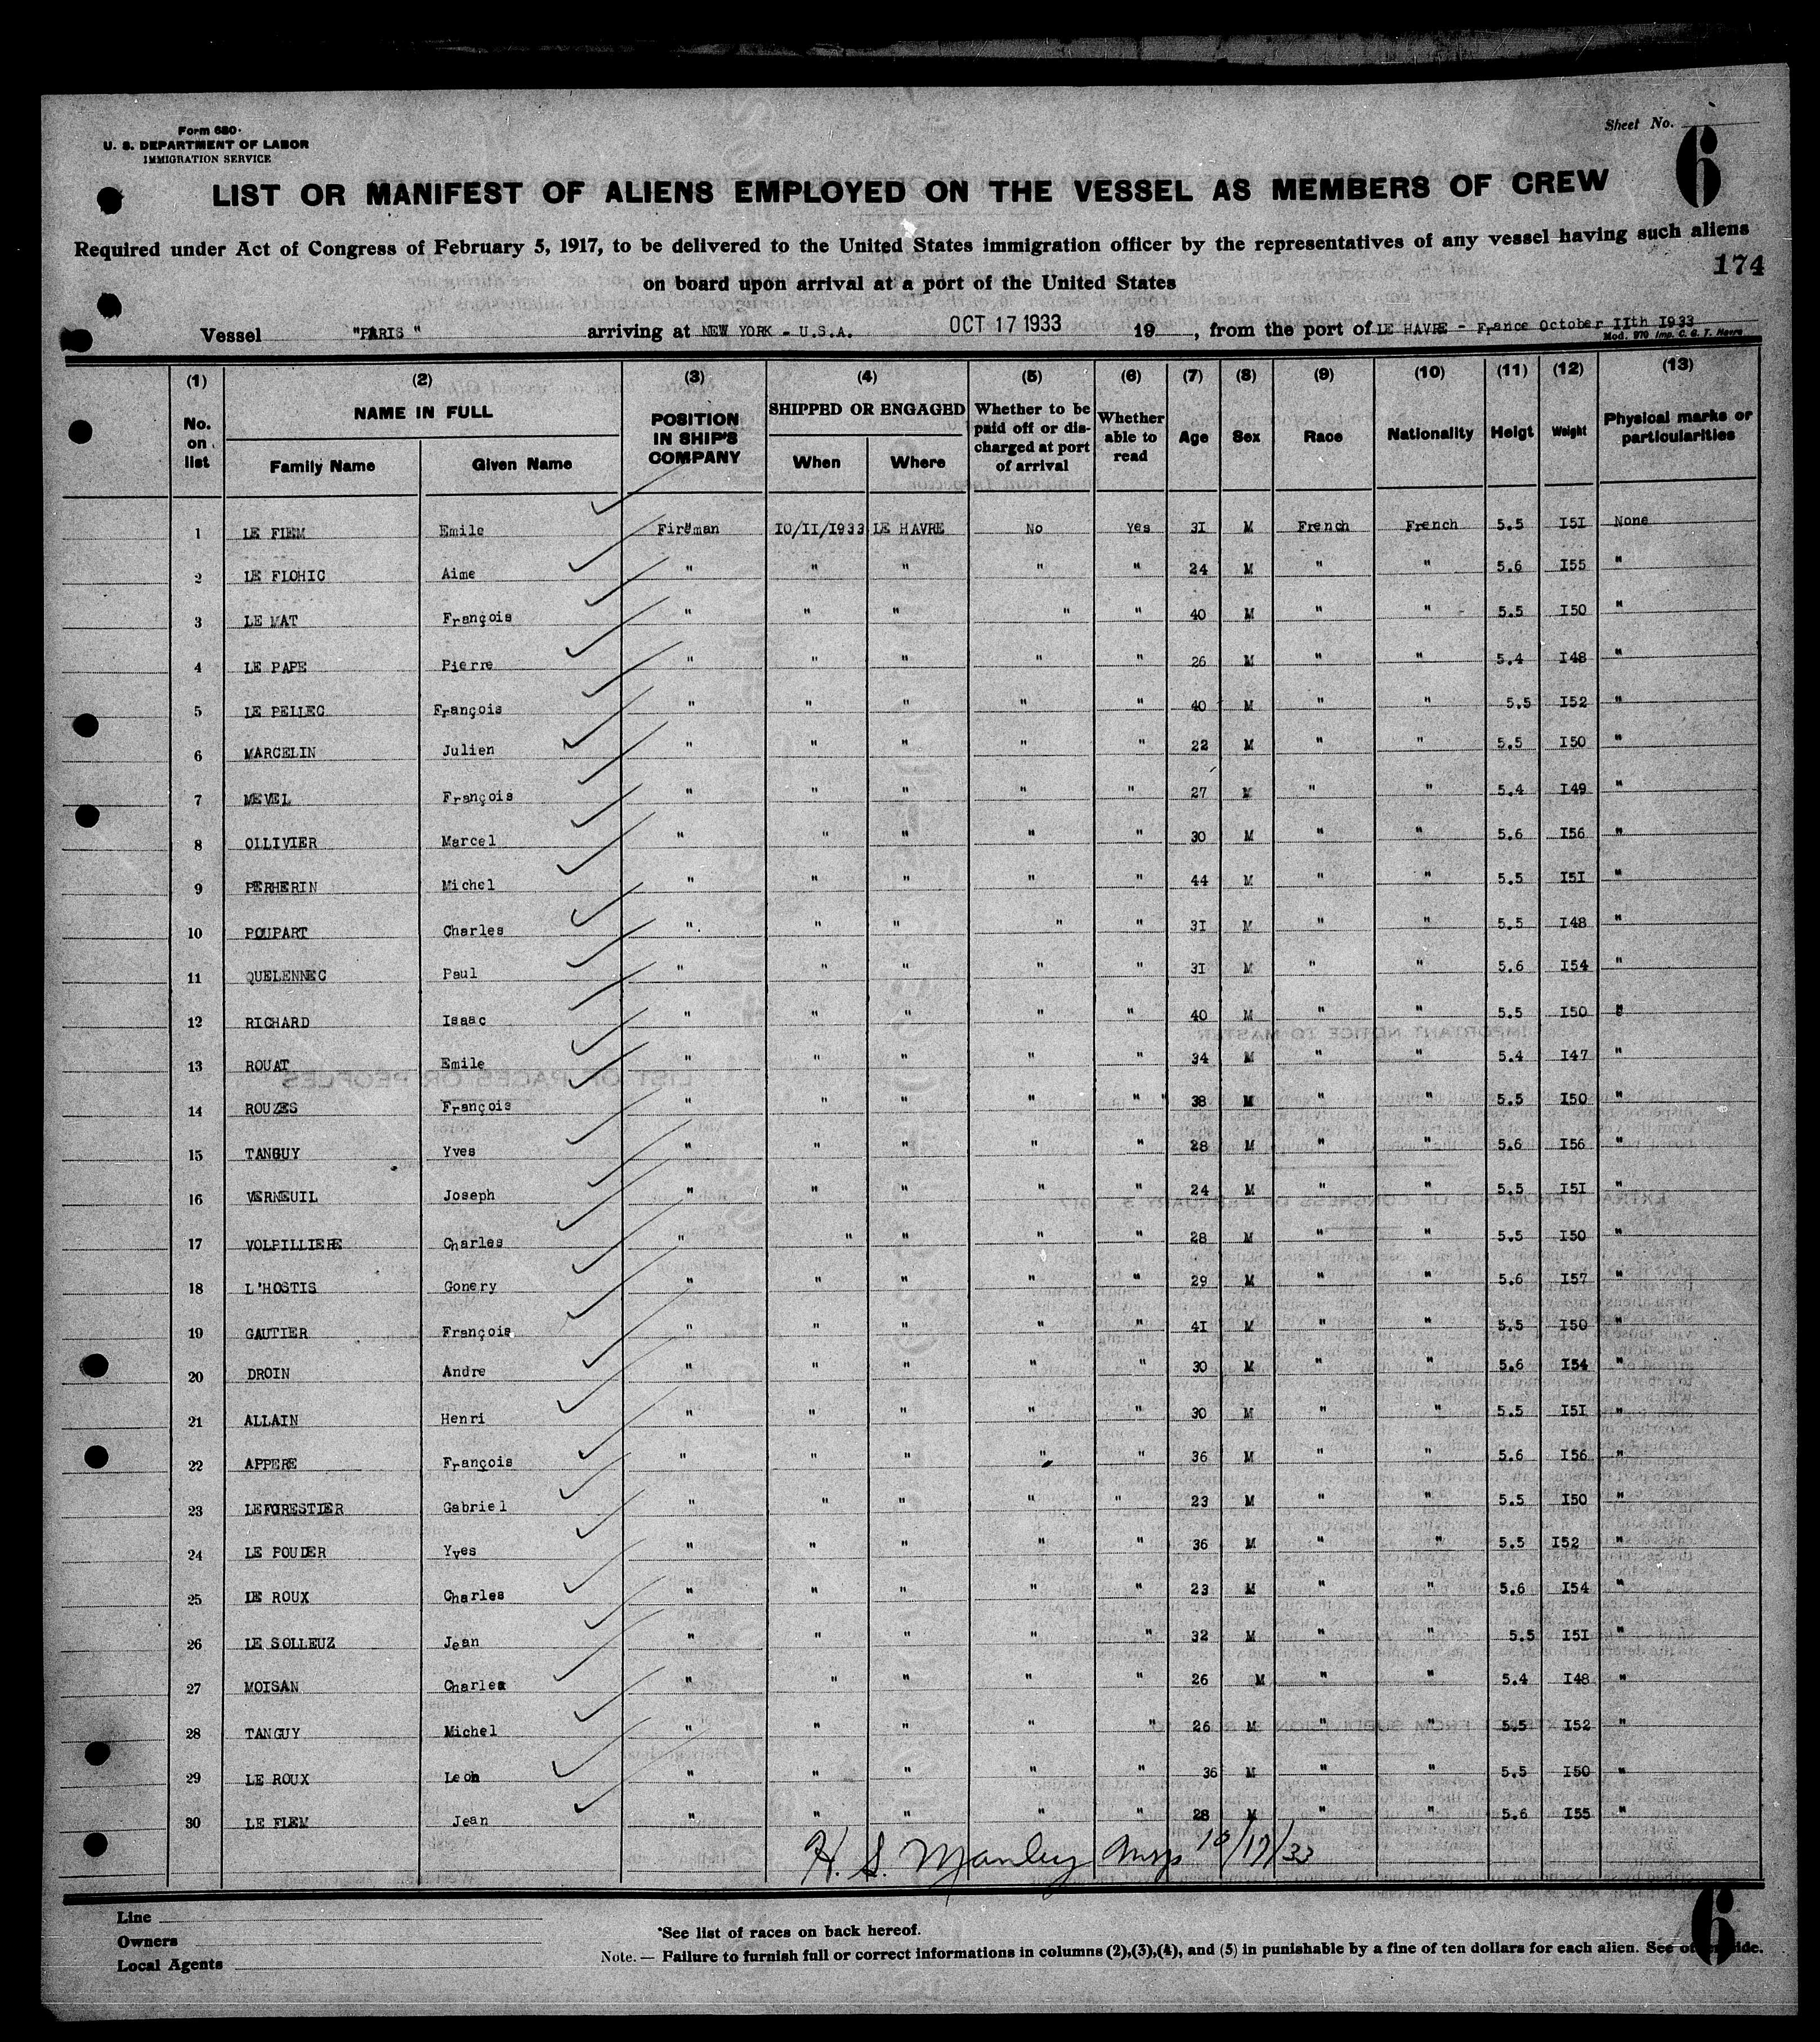 Form 680.
U. S. DEPARTMENT OF LABOR
IMMIGRATION SERVICE
Sheet No. 6
LIST OR MANIFEST OF ALIENS EMPLOYED ON THE VESSEL AS MEMBERS OF CREW
Required under Act of Congress of February 5, 1917, to be delivered to the United States immigration officer by the representatives of any vessel having such aliens
on board upon arrival at a port of the United States
174
Vessel "PARIS " arriving at NEW YORK - U.S.A. OCT 17 1933 19 , from the port of LE HAVRE - France October IIth I933
Mod. 970 Imp. C. G. T. Havre
(1) (2) (3) (4) (5) (6) (7) (8) (9) (10) (11) (12) (13)
No. on list NAME IN FULL Family Name Given Name POSITION IN SHIP'S COMPANY SHIPPED OR ENGAGED When Where Whether to be paid off or discharged at port of arrival Whether able to read Age Sex Race Nationality Heigt Weight Physical marks or particularities
1 LE FIEM Emile Fireman IO/II/I933 LE HAVRE No Yes 3I M French French 5.5 I5I None
2 LE FLOHIC Aime " " " " " 24 M " " 5.6 I55 "
3 LE MAT François " " " " " 40 M " " 5.5 I50 "
4 LE PAPE Pierre " " " " " 26 M " " 5.4 I48 "
5 LE PELLEC François " " " " " 40 M " " 5.5 I52 "
6 MARCELIN Julien " " " " " 22 M " " 5.5 I50 "
7 MEVEL François " " " " " 27 M " " 5.4 I49 "
8 OLLIVIER Marcel " " " " " 30 M " " 5.6 I56 "
9 PERHERIN Michel " " " " " 44 M " " 5.5 I5I "
10 POUPART Charles " " " " " 3I M " " 5.5 I48 "
11 QUELENNEC Paul " " " " " 3I M " " 5.6 I54 "
12 RICHARD Isaac " " " " " 40 M " " 5.5 I50 "
13 ROUAT Emile " " " " " 34 M " " 5.4 I47 "
14 ROUZES François " " " " " 38 M " " 5.5 I50 "
15 TANGUY Yves " " " " " 28 M " " 5.6 I56 "
16 VERNEUIL Joseph " " " " " 24 M " " 5.5 I5I "
17 VOLPILLIERE Charles " " " " " 28 M " " 5.5 I50 "
18 L'HOSTIS Gonery " " " " " 29 M " " 5.6 I57 "
19 GAUTIER François " " " " " 4I M " " 5.5 I50 "
20 DROIN Andre " " " " " 30 M " " 5.6 I54 "
21 ALLAIN Henri " " " " " 30 M " " 5.5 I5I "
22 APPERE François " " " " " 36 M " " 5.6 I56 "
23 LEFORESTIER Gabriel " " " " " 23 M " " 5.5 I50 "
24 LE POUDER Yves " " " " " 36 M " " 5.5 I52 "
25 LE ROUX Charles " " " " " 23 M " " 5.6 I54 "
26 LE SOLLEUZ Jean " " " " " 32 M " " 5.5 I5I "
27 MOISAN Charles " " " " " 26 M " " 5.4 I48 "
28 TANGUY Michel " " " " " 26 M " " 5.5 I52 "
29 LE ROUX Leon " " " " " 36 M " " 5.5 I50 "
30 LE FLEM Jean " " " " " 28 M " " 5.6 I55 "
H. S. Manley Insp 10/17/33
Line
Owners
Local Agents
*See list of races on back hereof.
Note. — Failure to furnish full or correct informations in columns (2),(3),(4), and (5) in punishable by a fine of ten dollars for each alien. See other side.
6